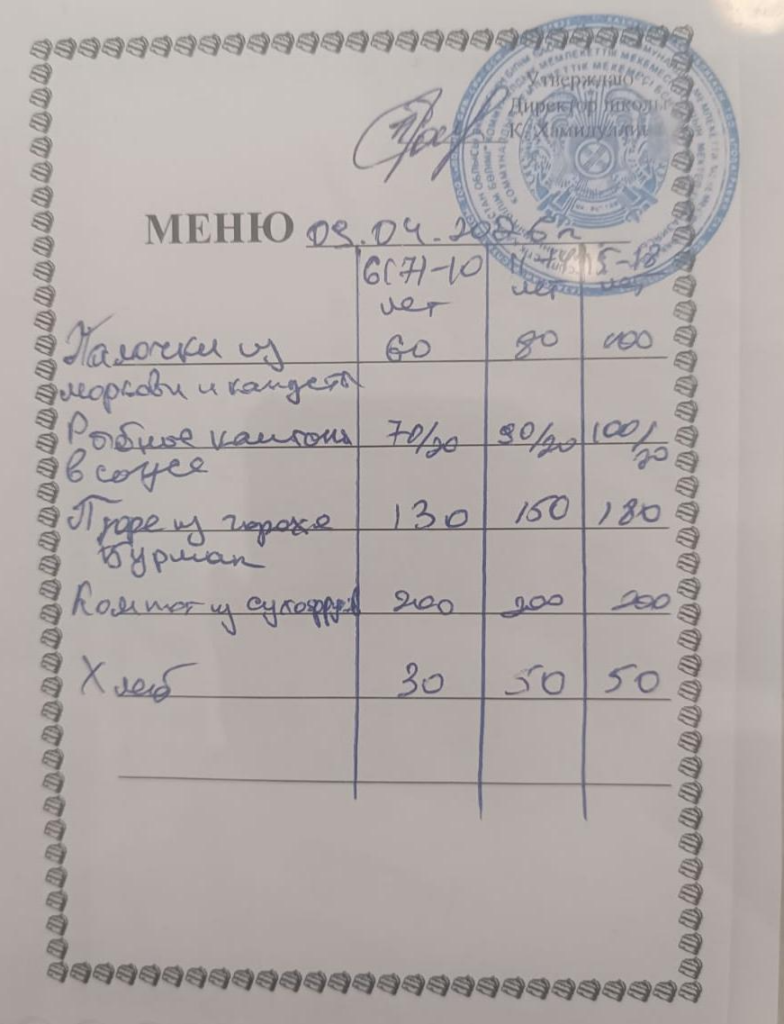 Утверждаю
Директор школы
К. Хамидуллин
МЕНЮ 09.04.2026 г
6(7)-10 лет 11-14 лет 15-18 лет
Палочки из 60 80 100
моркови и
Рыбное 70/20 90/20 100/20
в соусе
Пюре из гороха 130 150 180
Компот из сухофрук 200 200 200
Хлеб 30 50 50